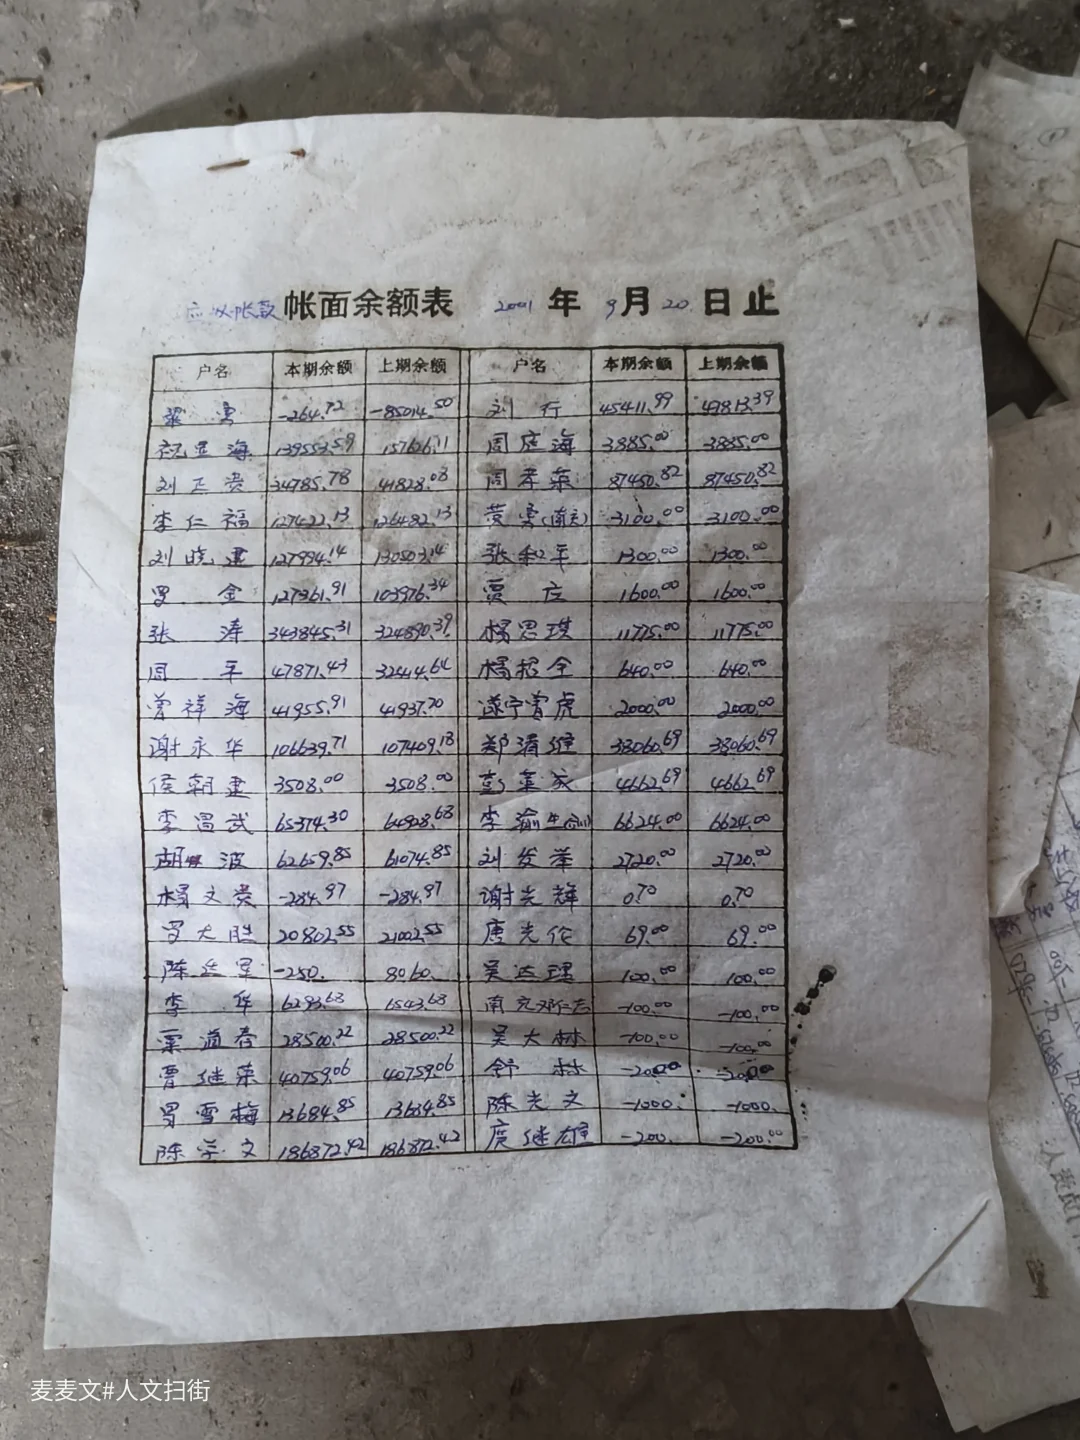 应收帐款 帐面余额表 2001 年 9 月 20 日止
户名 本期余额 上期余额 户名 本期余额 上期余额
梁勇 -264.72 -85014.50 刘行 45411.99 43813.39
祝星海 139553.59 157626.11 周庭海 3885.00 3885.00
刘正贵 34785.78 41828.03 周孝荣 87450.82 87450.82
李仁福 127422.13 126482.13 黄勇(南充) 3100.00 3100.00
刘晓建 127994.14 130503.14 张和平 1300.00 1300.00
罗金 127361.91 103976.34 贾庄 1600.00 1600.00
张涛 343845.31 324890.39 杨思琪 11775.00 11775.00
周平 47871.43 32414.64 杨招全 640.00 640.00
曾祥海 41955.91 41937.70 遂宁曾虎 2000.00 2000.00
谢永华 106639.71 107409.13 郑清继 38060.69 38060.69
侯朝建 3508.00 3508.00 彭 家 4662.69 4662.69
李昌武 65374.30 64928.63 李瑜 6624.00 6624.00
胡波 62659.85 61074.85 刘发举 2720.00 2720.00
杨文贵 -284.97 -284.97 谢光辉 0.70 0.70
罗大胜 20802.55 21002.55 唐光伦 69.00 69.00
陈廷军 -250. 8060. 吴达琨 100.00 100.00
李华 6293.63 1543.63 南充邓仁 -100.00 -100.00
粟道春 28500.22 28500.22 吴大林 -100.00 -100.00
曹继荣 40759.06 40759.06 舒林 -200.00 -200.00
罗雪梅 13684.85 13684.85 陈光文 -1000. -1000.
陈学文 186872.42 186872.42 庹继雄 -200. -200.00
麦麦文#人文扫街